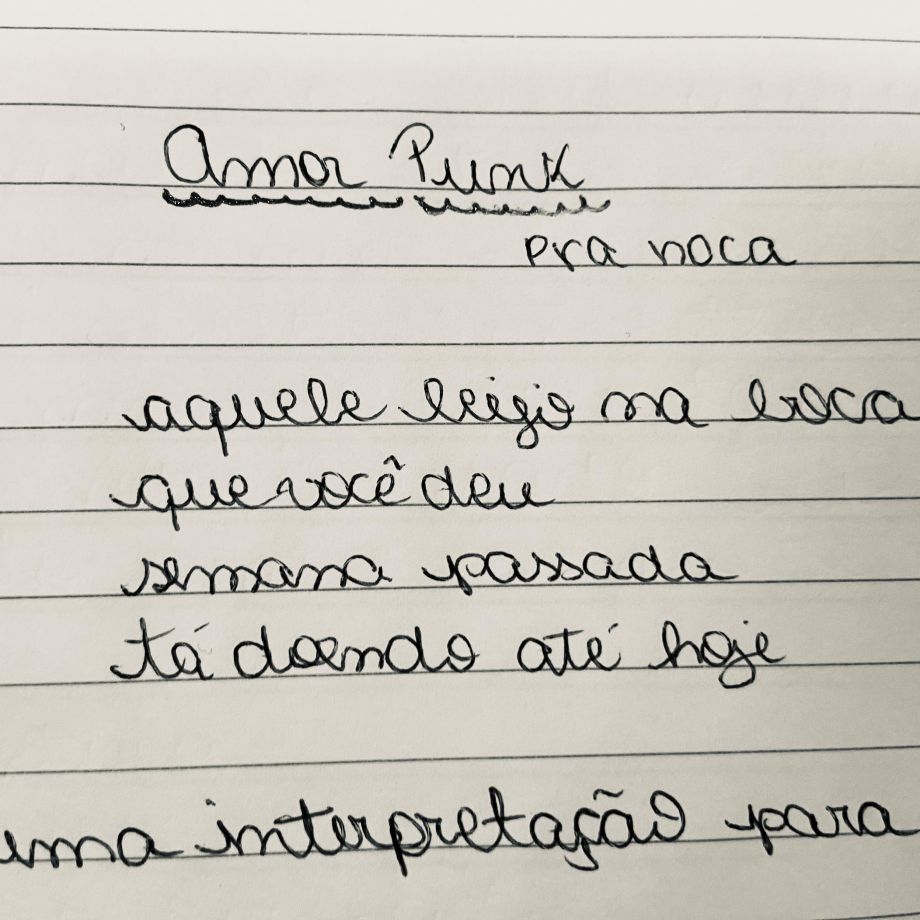 Amor Punk
pra noca
aquele beijo na boca
que você deu
semana passada
tá doendo até hoje
uma interpretação para